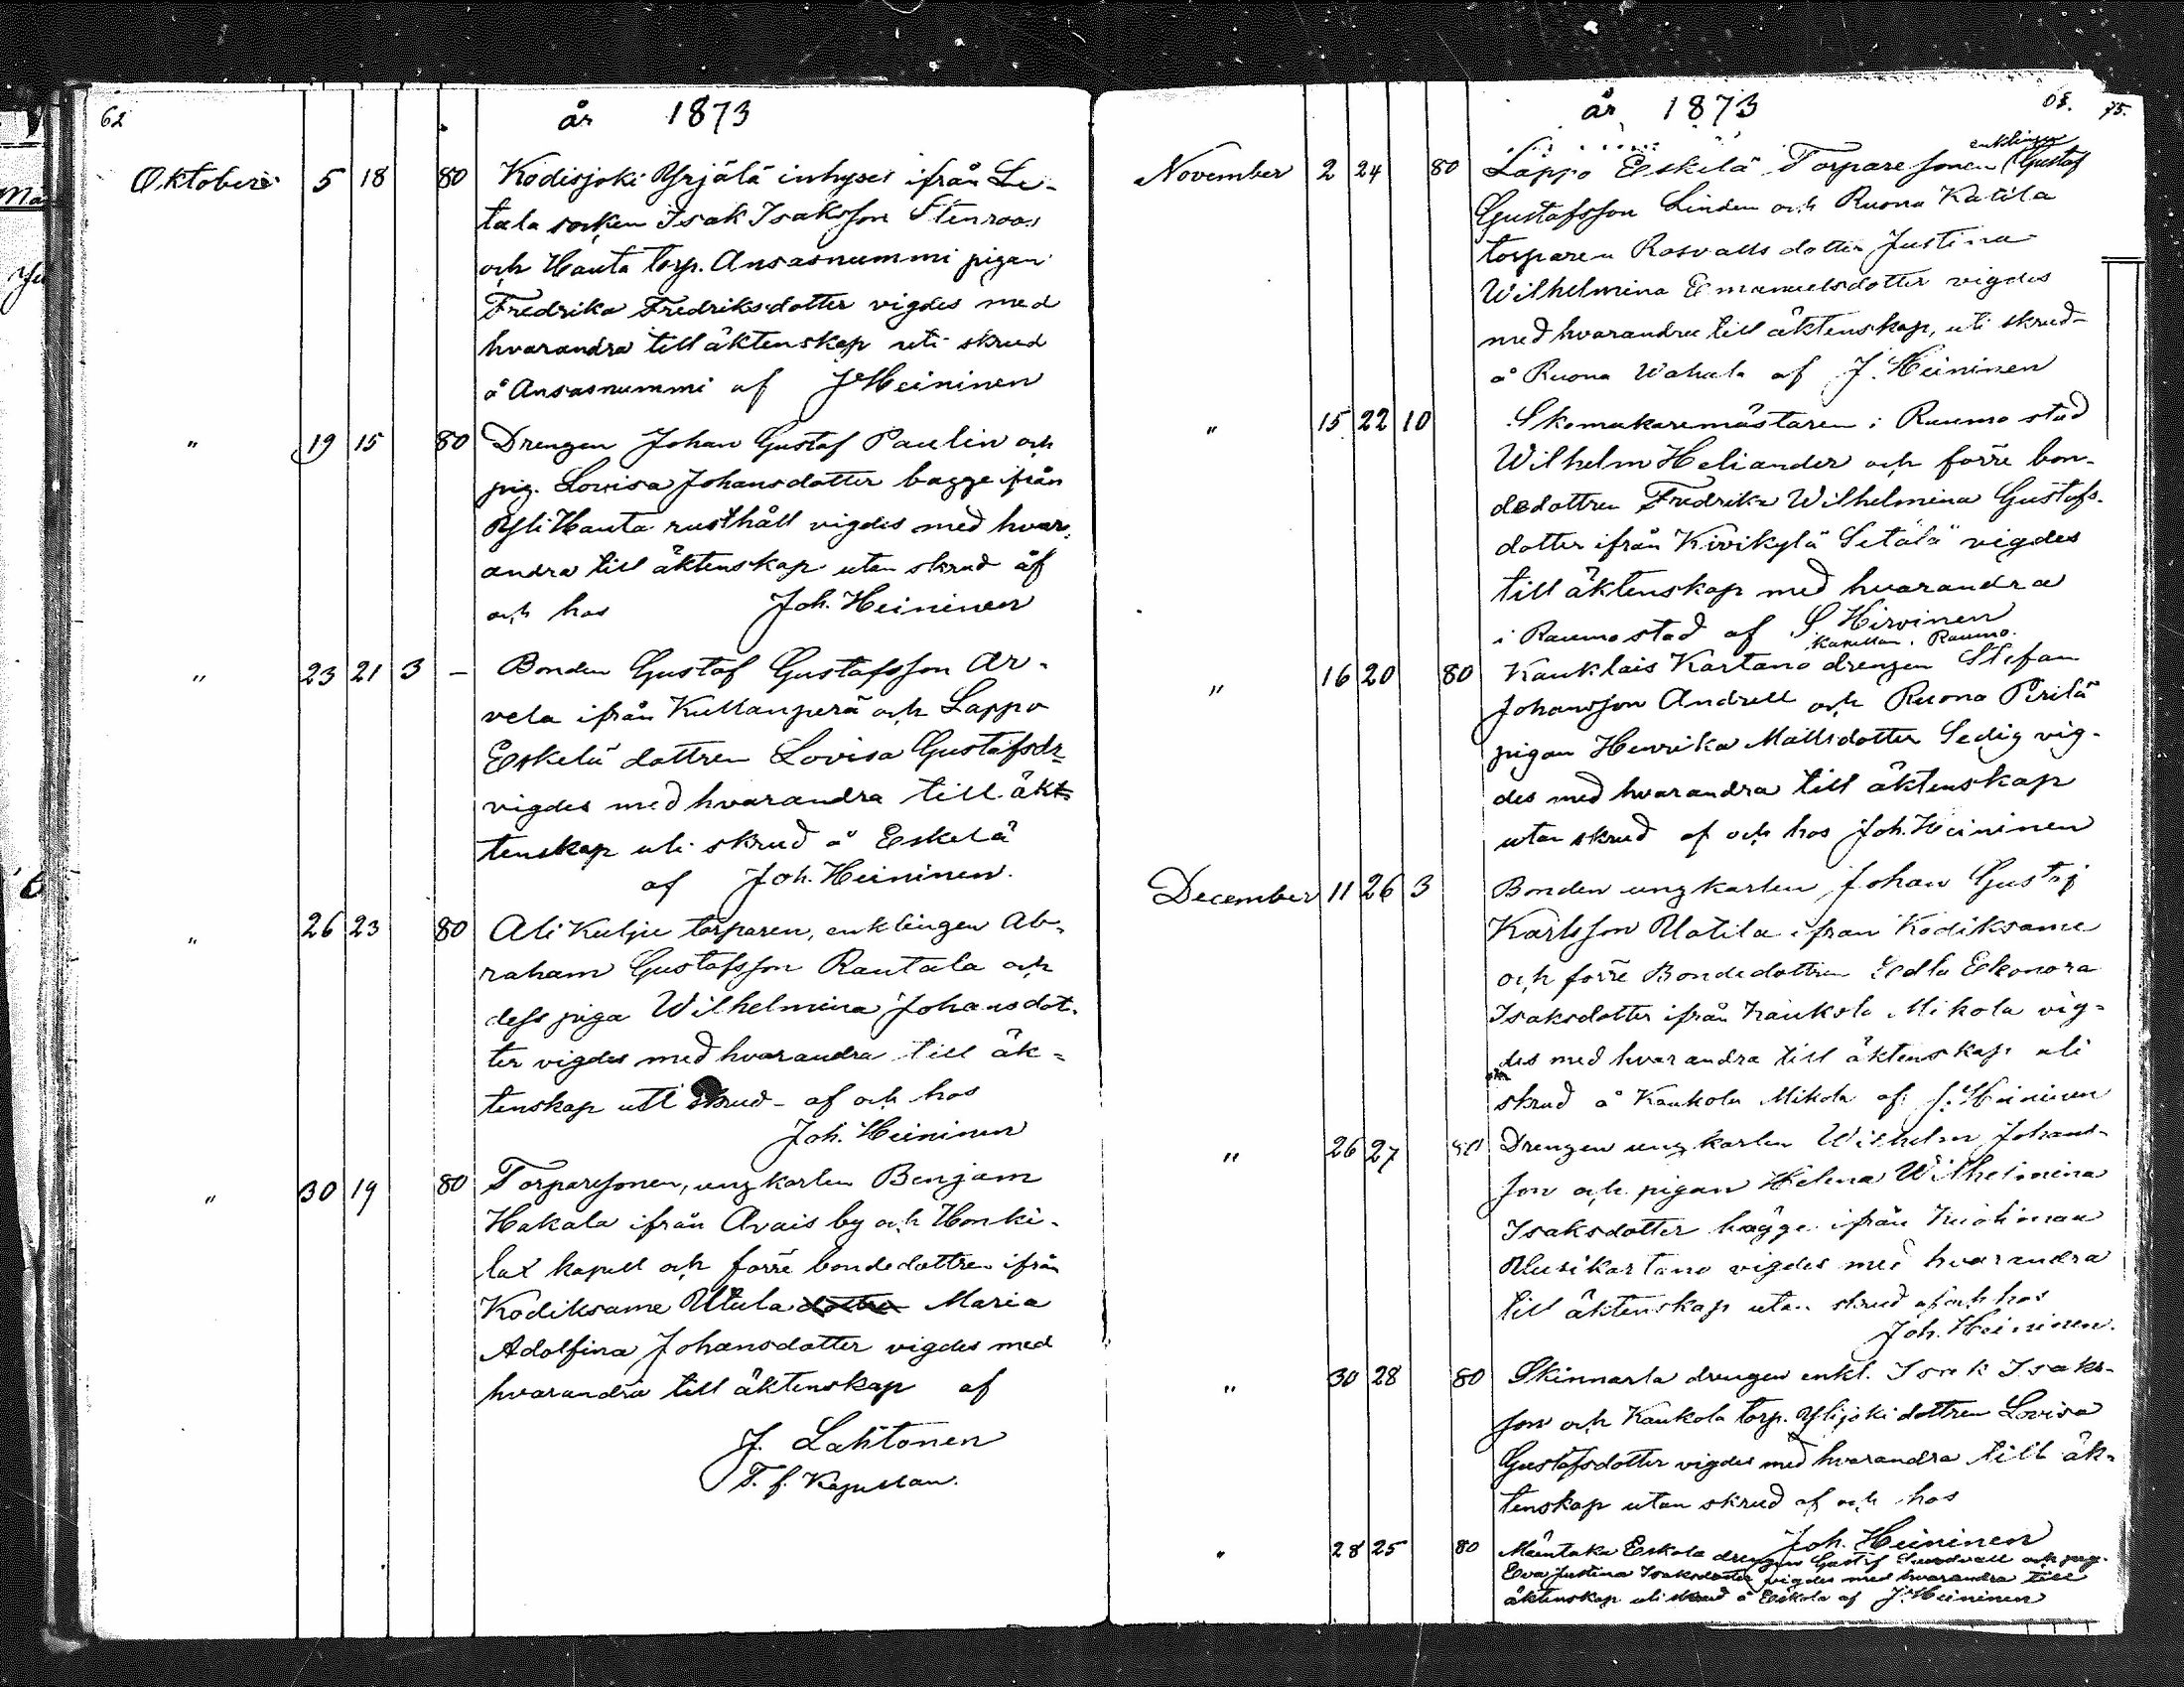 62
år 1873
Oktober 5 18 80 Kodisjoki Yrjälä inhyses ifrån Le-
tala socken Isak Isaksson Stenroos
och Hauta torp. Ansasnummi pigan
Fredrika Fredriksdotter vigdes med
hvarandra till äktenskap uti skrud
å Ansasnummi af J Heininen
" 19 15 80 Drengen Johan Gustaf Paulin och
pig. Lovisa Johansdotter bägge ifrån
Yli Hauta rusthåll vigdes med hvar-
andra till äktenskap utan skrud af
och hos Joh. Heininen
" 23 21 3 – Bonden Gustaf Gustafsson Ar-
vela ifrån Kullanperä och Lappo
Eskelä dottren Lovisa Gustafsdr
vigdes med hvarandra till äk-
tenskap uti skrud å Eskelä
af Joh. Heininen.
" 26 23 80 Ali Kulju torparen, enklingen Ab-
raham Gustafsson Rautala och
dess piga Wilhelmina Johansdot-
ter vigdes med hvarandra till äk-
tenskap uti skrud af och hos
Joh. Heininen
" 30 19 80 Torparesonen, ungkarlen Benjam
Hakala ifrån Avais by och Honki-
lax kapell och förre bondedottren ifrån
Kodiksame Utula dotter Maria
Adolfina Johansdotter vigdes med
hvarandra till äktenskap af
J. Lahtonen
T. f. Kapellan.
75.
år 1873
enklingen
November 2 24 80 Lappo Eskelä Torpare sonen Gustaf
Gustafsson Linden och Ruona Katila
torparen Rosvalls dotter Justina
Wilhelmina Emanuelsdotter vigdes
med hvarandra till äktenskap, uti skrud
å Ruona Wahala af J. Heininen
" 15 22 10 Skomakaremästaren i Raumo stad
Wilhelm Heliander och förre bon-
dedottren Fredrika Wilhelmina Gustafs-
dotter ifrån Kivikylä Setälä vigdes
till äktenskap med hvarandra
i Raumo stad af S Hirvinen
Kapellan i Raumo.
" 16 20 80 Kauklais Kartano drengen Stefan
Johansson Andrell och Ruona Pirilä
pigan Henrika Mattsdotter Sedig vig-
des med hvarandra till äktenskap
utan skrud af och hos Joh. Heininen
December 11 26 3 Bonden ungkarlen Johan Gustaf
Karlsson Uotila ifrån Kodiksame
och förre Bondedottren Edla Eleonora
Isaksdotter ifrån Kaukola Mikola vig-
des med hvarandra till äktenskap uti
skrud å Kaukola Mikola af J. Heininen
" 26 27 80 Drengen ungkarlen Wilhelm Johans-
son och pigan Helena Wilhelmina
Isaksdotter bägge ifrån
Uusikartano vigdes med hvarandra
till äktenskap utan skrud af och hos
Joh. Heininen.
" 30 28 80 Skinnarla drengen enkl. Isak Isaks-
son och Kaukola torp. Ylijoki dottren Lovisa
Gustafsdotter vigdes med hvarandra till äk-
tenskap utan skrud af och hos
Joh. Heininen
" 28 25 80 Mäentaka Eskola drengen Gustaf Sundvall och pig.
Eva Justina Isaksdotter vigdes med hvarandra till
äktenskap uti skrud å Eskola af J. Heininen